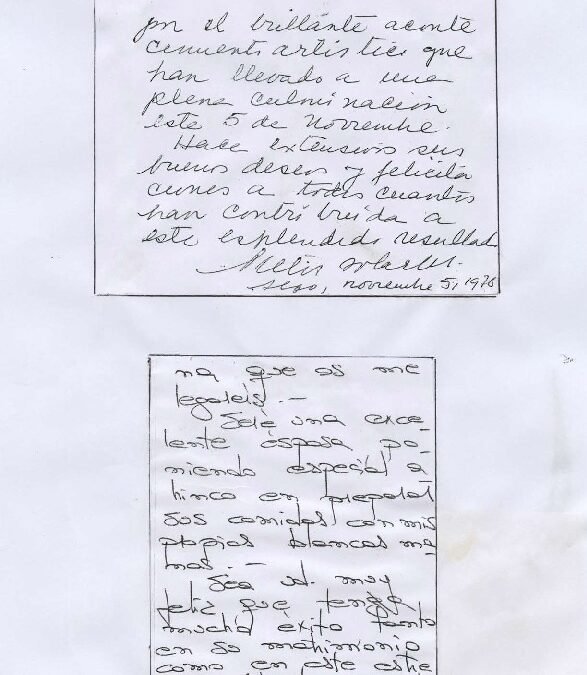 por el brillante aconte
cimiento artistico que
han llevado a una
plena culminación
este 5 de Noviembre.
Hace extensivos sus
buenos deseos y felicita
ciones a todos cuantos
han contribuido a
este esplendido resultado
noviembre 5, 1978
na que os me
Seré una exce-
lente esposa po-
niendo especial a-
hinco en preparar
sus comidas con mis
propias blancas ma-
nos. —
Sea vd. muy
feliz que tenga
mucha éxito tanto
en so matrimonio
como en este estre